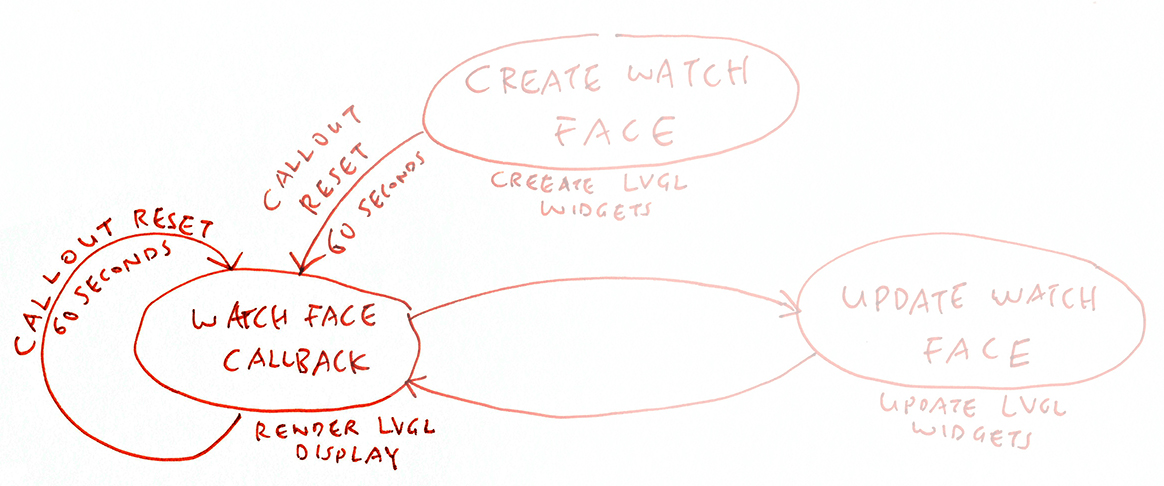 CREATE WATCH
FACE
CREEATE LVGL
WIDGETS
CALLOUT
RESET
60 SECONDS
CALLOUT RESET
60 SECONDS
WATCH FACE
CALLBACK
RENDER LVGL
DISPLAY
UPDATE WATCH
FACE
UPDATE LVGL
WIDGETS